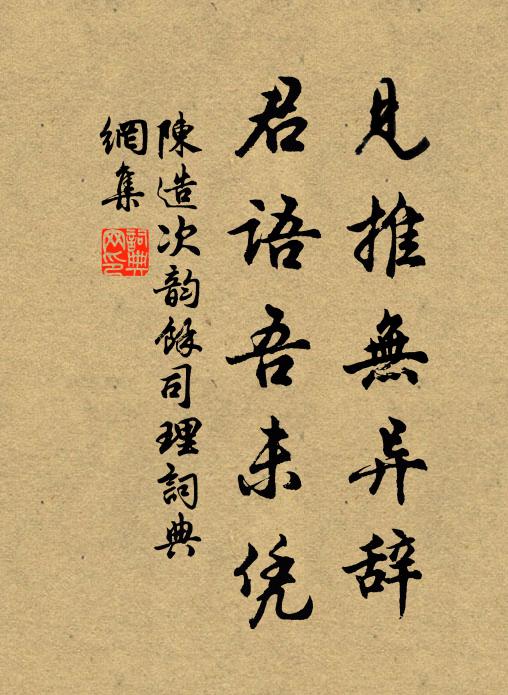 見推無异辞
君語吾未凭
陳造次韵餘司理詞典
網集
詞典
网印